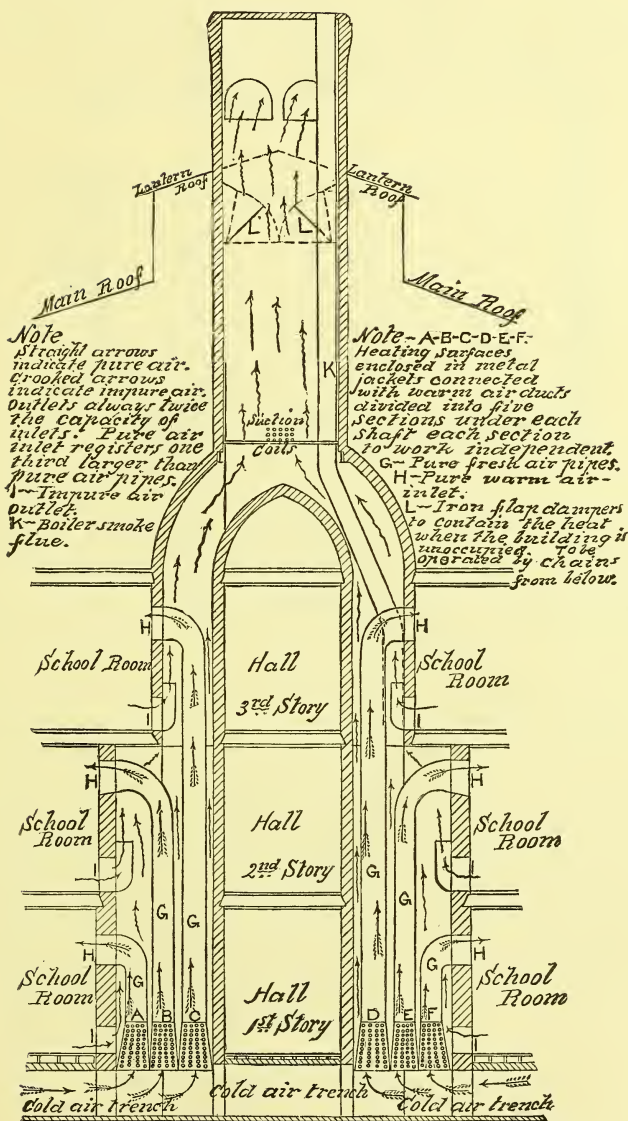 Lantern
Roof
Lantern
Roof
L
L
Main Roof
Main Roof
Note
Straight arrows
indicate pure air.
Crooked arrows
indicate impure air.
Outlets always twice
the capacity of
inlets. Pure air
inlet registers one
third larger than
pure air pipes.
I—Impure air
outlet.
K—Boiler smoke
flue.
K
Suction
Coils
Note—A-B-C-D-E-F—
Heating surfaces
enclosed in metal
jackets connected
with warm air ducts
divided into five
sections under each
shaft each section
to work independent.
G—Pure fresh air pipes.
H—Pure warm air-
inlet.
L—Iron flap dampers
to contain the heat
when the building is
unoccupied. To be
operated by chains
from below.
H
H
School Room
Hall
3rd Story
School
Room
I
I
H
H
School
Room
Hall
2nd Story
School
Room
I
I
G
G
G
G
H
H
G
G
School
Room
Hall
1st Story
School
Room
I
I
A
B
C
D
E
F
Cold air trench
Cold air trench
Cold air trench